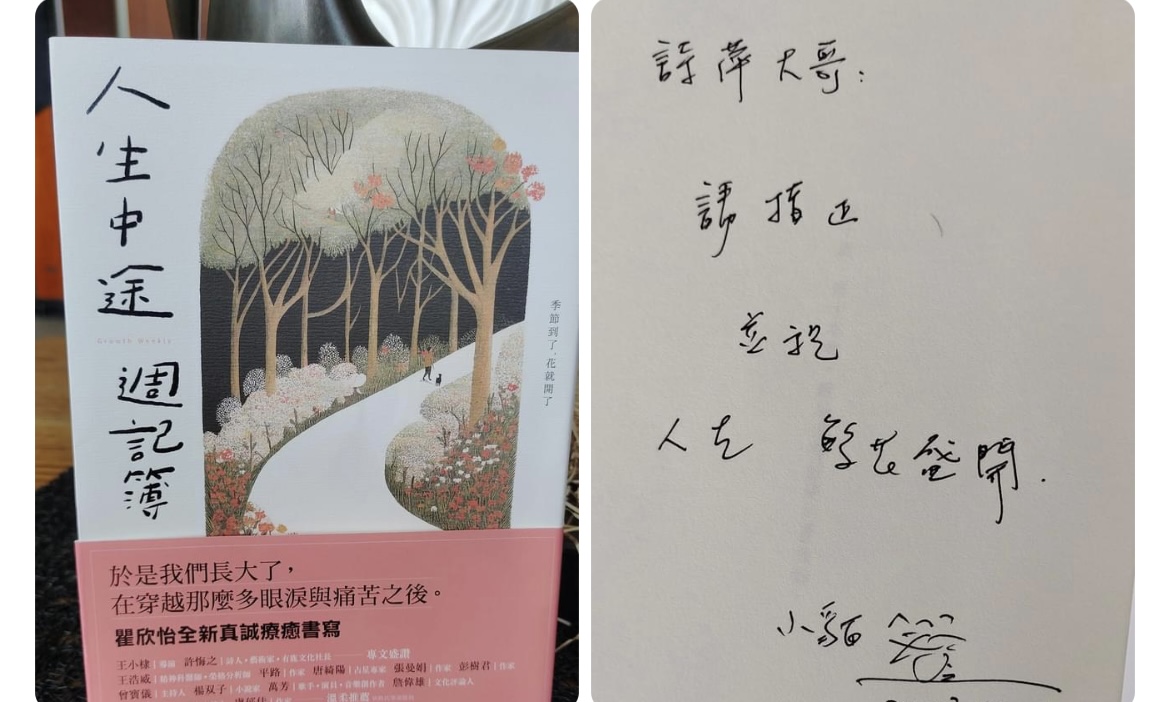 人生中途
Growth Weekly
週記簿
季節到了，花就開了
於是我們長大了，
在穿越那麼多眼淚與痛苦之後。
瞿欣怡全新真誠療癒書寫
王小棣｜導演　許悔之｜詩人・藝術家・有鹿文化社長 —— 專文盛讚
王浩威｜精神科醫師・榮格分析師　平路｜作家　唐綺陽｜占星專家　張曼娟｜作家　彭樹君｜作家
曾寶儀｜主持人　楊双子｜小說家　萬芳｜歌手・演員・音樂創作者　詹偉雄｜文化評論人
溫柔推薦
詩萍大哥：
請指正
並祝
人生　繁花盛開.
小貓